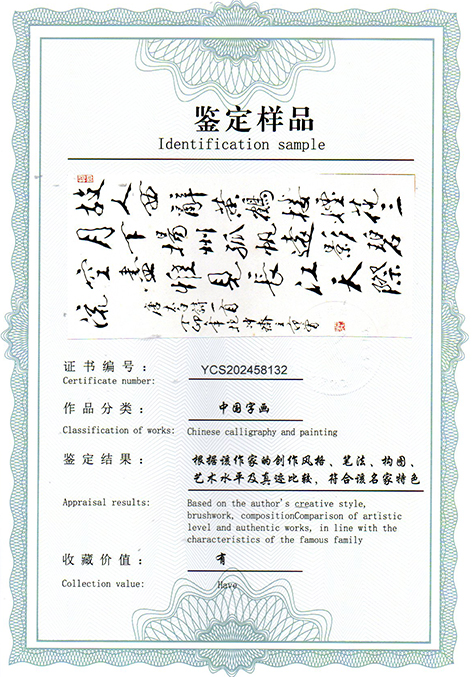 鉴定样品
Identification sample
故人西辭黃鶴樓煙花三
月下揚州孤帆遠影碧
空盡惟見長江天際
流
证书编号：
YCS202458132
Certificate number:
作品分类：
中国字画
Classification of works:
Chinese calligraphy and painting
鉴定结果：
根据该作家的创作风格、笔法、构图、
艺术水平及真迹比较，符合该名家特色
Appraisal results:
Based on the author's creative style,
brushwork, compositionComparison of artistic
level and authentic works, in line with the
characteristics of the famous family
收藏价值：
有
Collection value:
Have